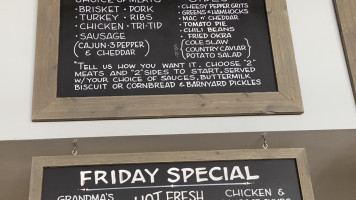 CHOICE OF MEATS
BRISKET · PORK
TURKEY · RIBS
· CHICKEN · TRI-TIP
· SAUSAGE
(CAJUN · 3 PEPPER
& CHEDDAR)
CHEESY PEPPER GRITS
· GREENS & HAMHOCKS
· MAC N' CHEDDAR
· TOMATO PIE
· CHILI BEANS
· FRIED OKRA
COLE SLAW
(COUNTRY CAVIAR)
POTATO SALAD
*TELL US HOW YOU WANT IT. CHOOSE "2"
MEATS AND "2" SIDES TO START, SERVED
W/YOUR CHOICE OF SAUCES, BUTTERMILK
BISCUIT OR CORNBREAD & BARNYARD PICKLES
FRIDAY SPECIAL
GRANDMA'S
HOT FRESH
CHICKEN &